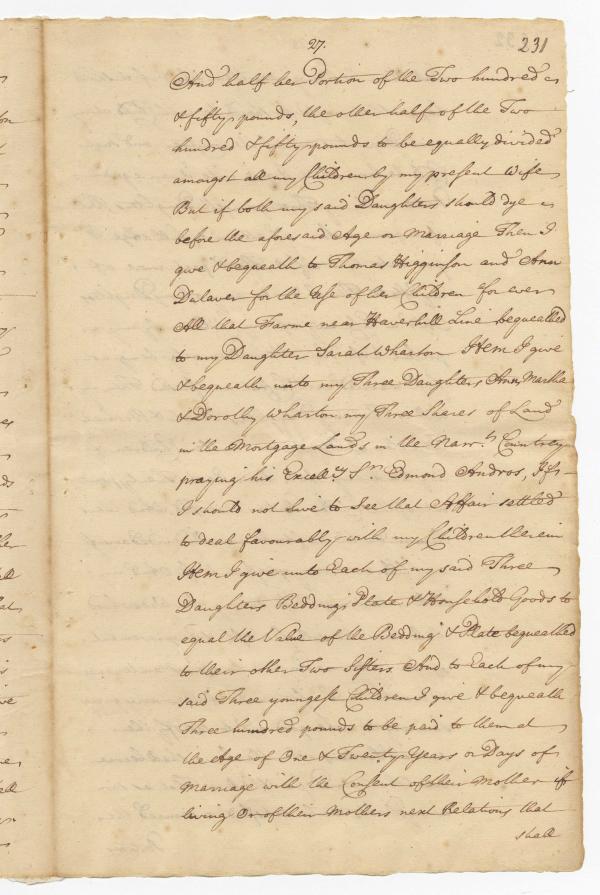 27. 231
And half her Portion of the Two hundred
& fifty pounds, the other half of the Two
hundred & fifty pounds to be equally divided
amongst all my Children by my present Wife
But if both my said Daughters should dye
before the aforesaid Age or Marriage Then I
give & bequeath to Thomas Higginson and Ann
Dulaver for the Use of her Children for ever
All that Farme near Haverhill Line bequeathed
to my Daughter Sarah Wharton Item I give
& bequeath unto my Three Daughters Ann, Martha
& Dorothy Wharton my Three Shares of Land
in the Mortgage Lands in the Narr.tt Countrey
praying his Excell.y S.r Edmond Andros, If
I should not live to See that Affair settled
to deal favourably with my Children therein
Item I give unto Each of my said Three
Daughters Bedding Plate & Household Goods to
equal the Value of the Bedding & Plate bequeathed
to their other Two Sisters And to Each of my
said Three youngest Children I give & bequeath
Three hundred pounds to be paid to them at
the Age of One & Twenty Years or Days of
Marriage with the Consent of their Mother if
living Or of their Mothers next Relations that
shall